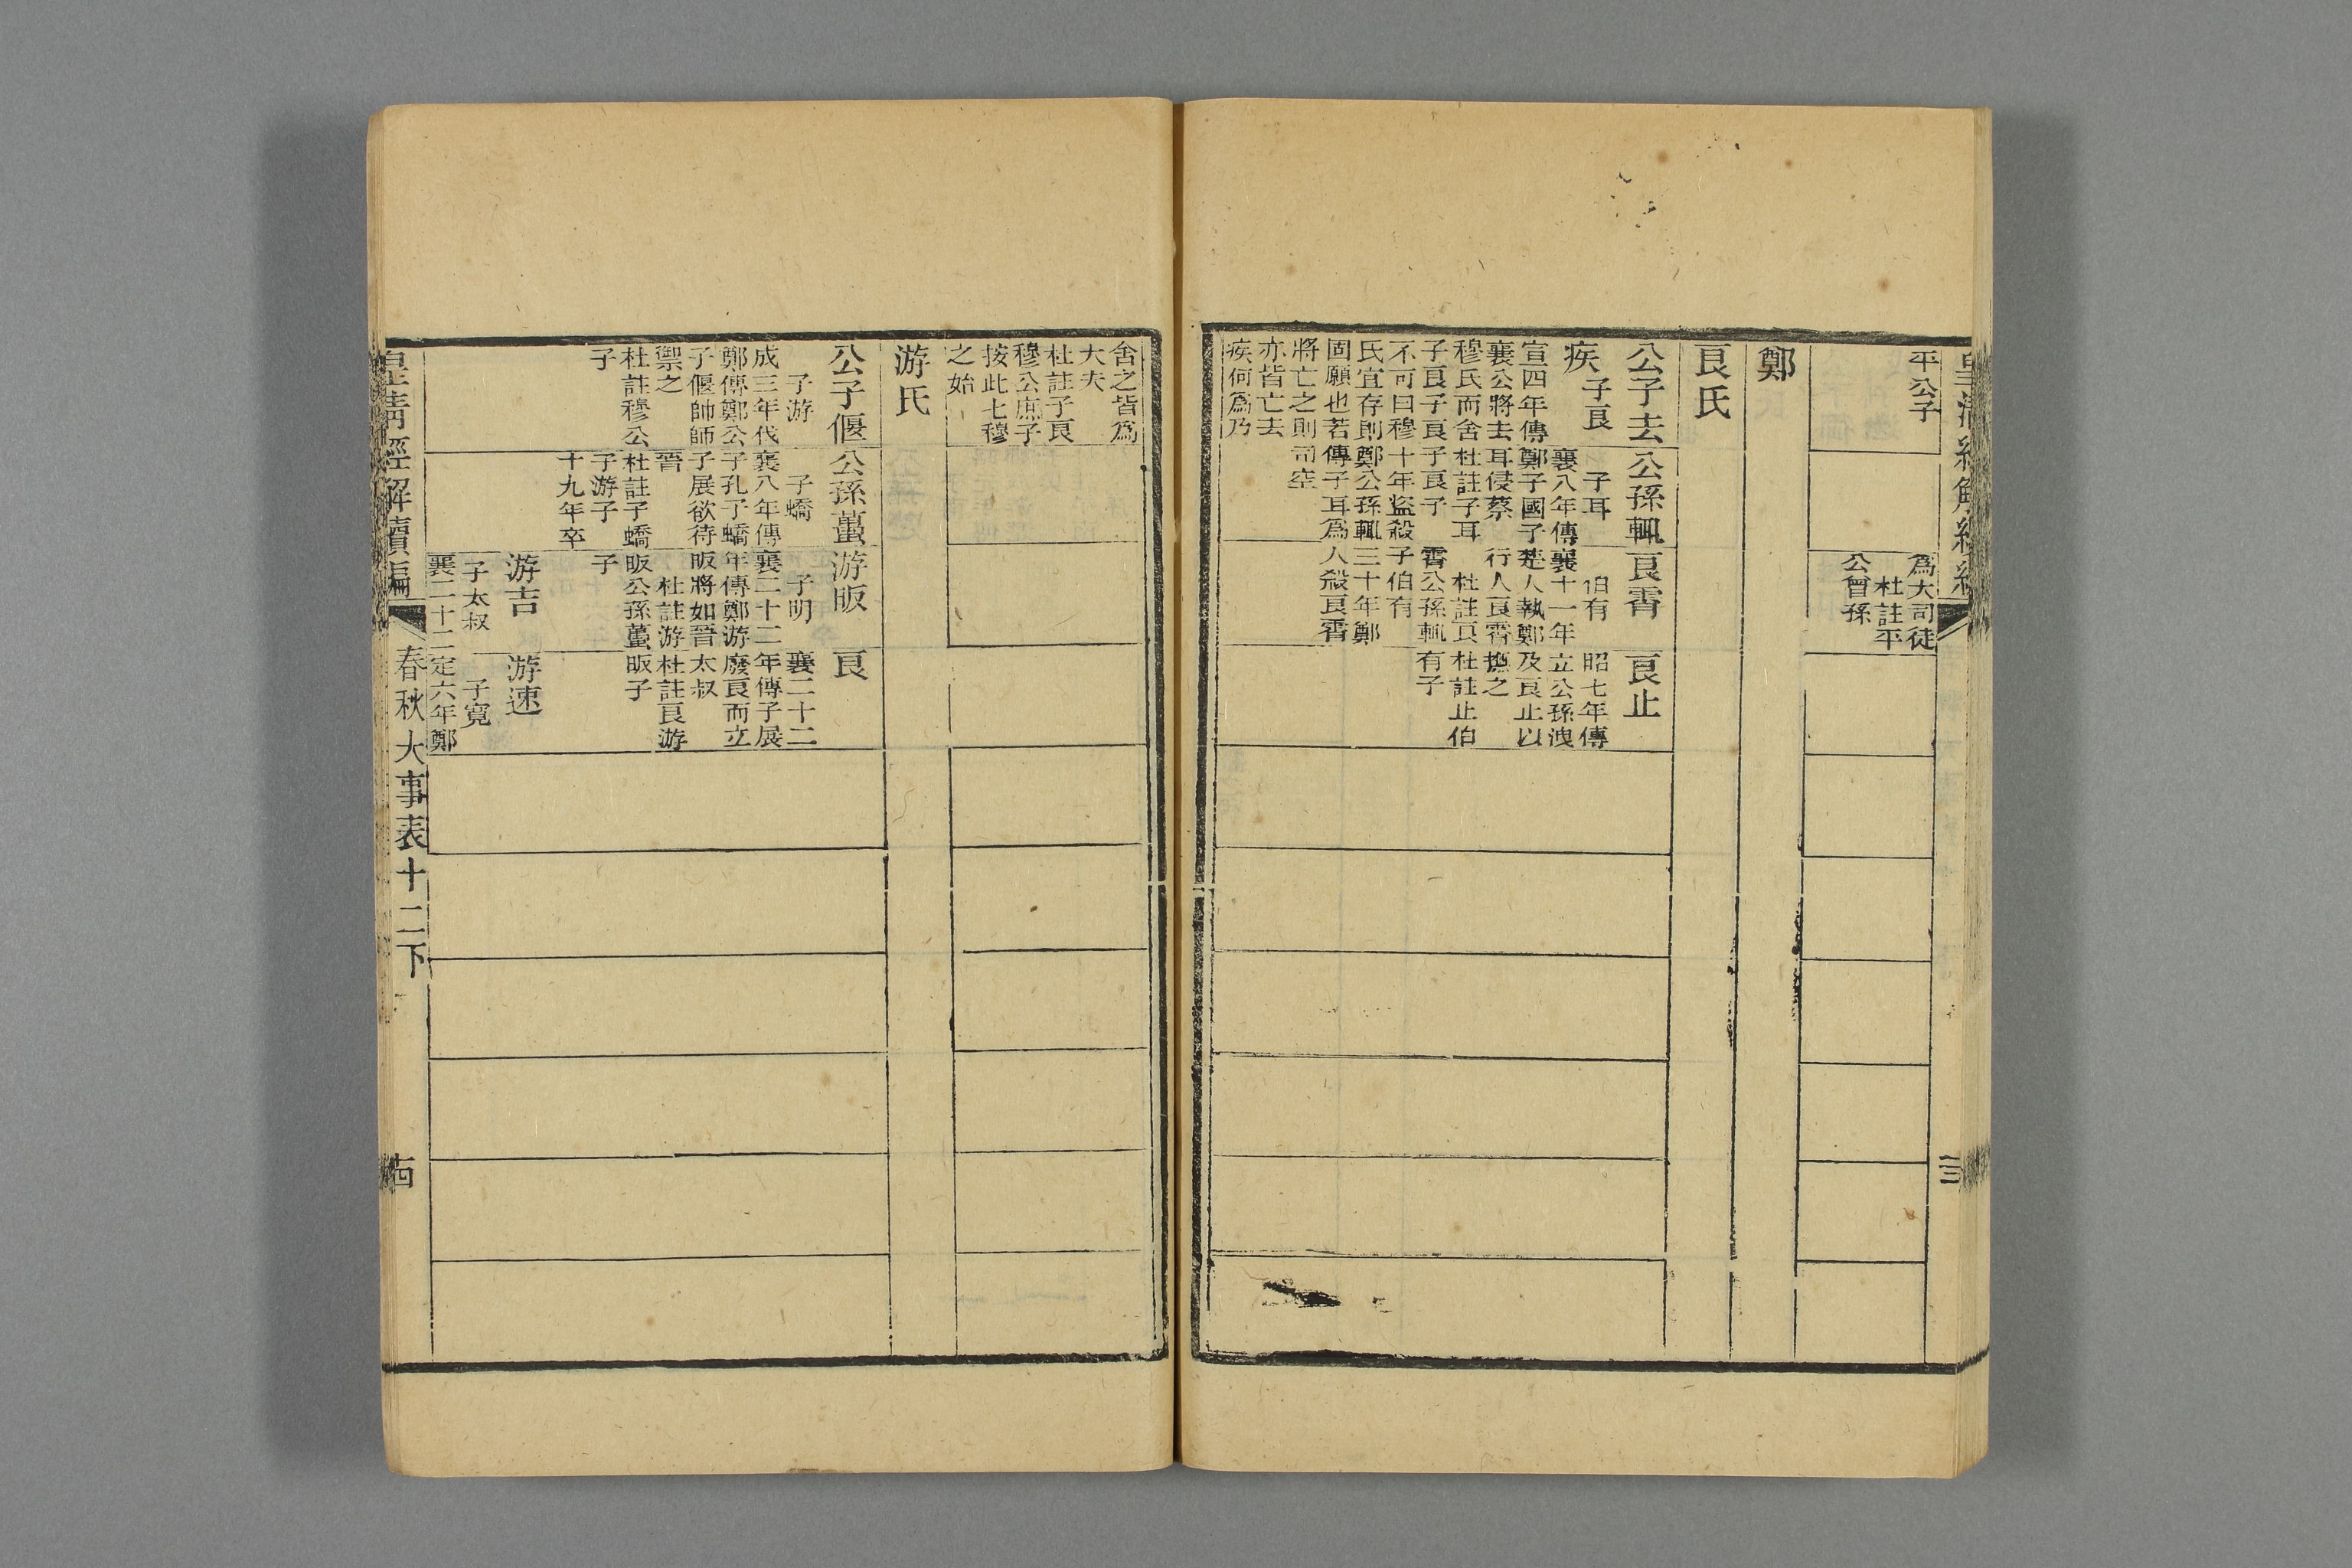 平公子
爲大司徒
杜註平
公曾孫
鄭
良氏
公子去
疾 子良
宣四年傳
襄公將去
穆氏而舍
子良子良
不可曰穆
氏宜存則
固願也若
將亡之則
亦皆亡去
疾何爲乃
公孫輒
子耳
襄八年傳
鄭子國子
耳侵蔡
杜註子耳
子良子
十年盜殺
鄭公孫輒
傳子耳爲
司空
良霄
伯有
襄十一年
楚人執鄭
行人良霄
杜註良
霄公孫輒
子伯有
三十年鄭
人殺良霄
良止
昭七年傳
立公孫洩
及良止以
撫之
杜註止伯
有子
舍之皆爲
大夫
杜註子良
穆公庶子
按此七穆
之始
游氏
公子偃
子游
成三年代
鄭傳鄭公
子偃帥師
禦之
杜註穆公
子
公孫蠆
子蟜
襄八年傳
子孔子蟜
子展欲待
晉
杜註子蟜
子游子
十九年卒
游昄
子明
襄二十二
年傳鄭游
昄將如晉
杜註游
昄公孫蠆
子
良
襄二十二
年傳子展
廢良而立
太叔
杜註良游
昄子
游吉
子太叔
襄二十二
游速
子寬
定六年鄭
皇清經解續編
春秋大事表十二下